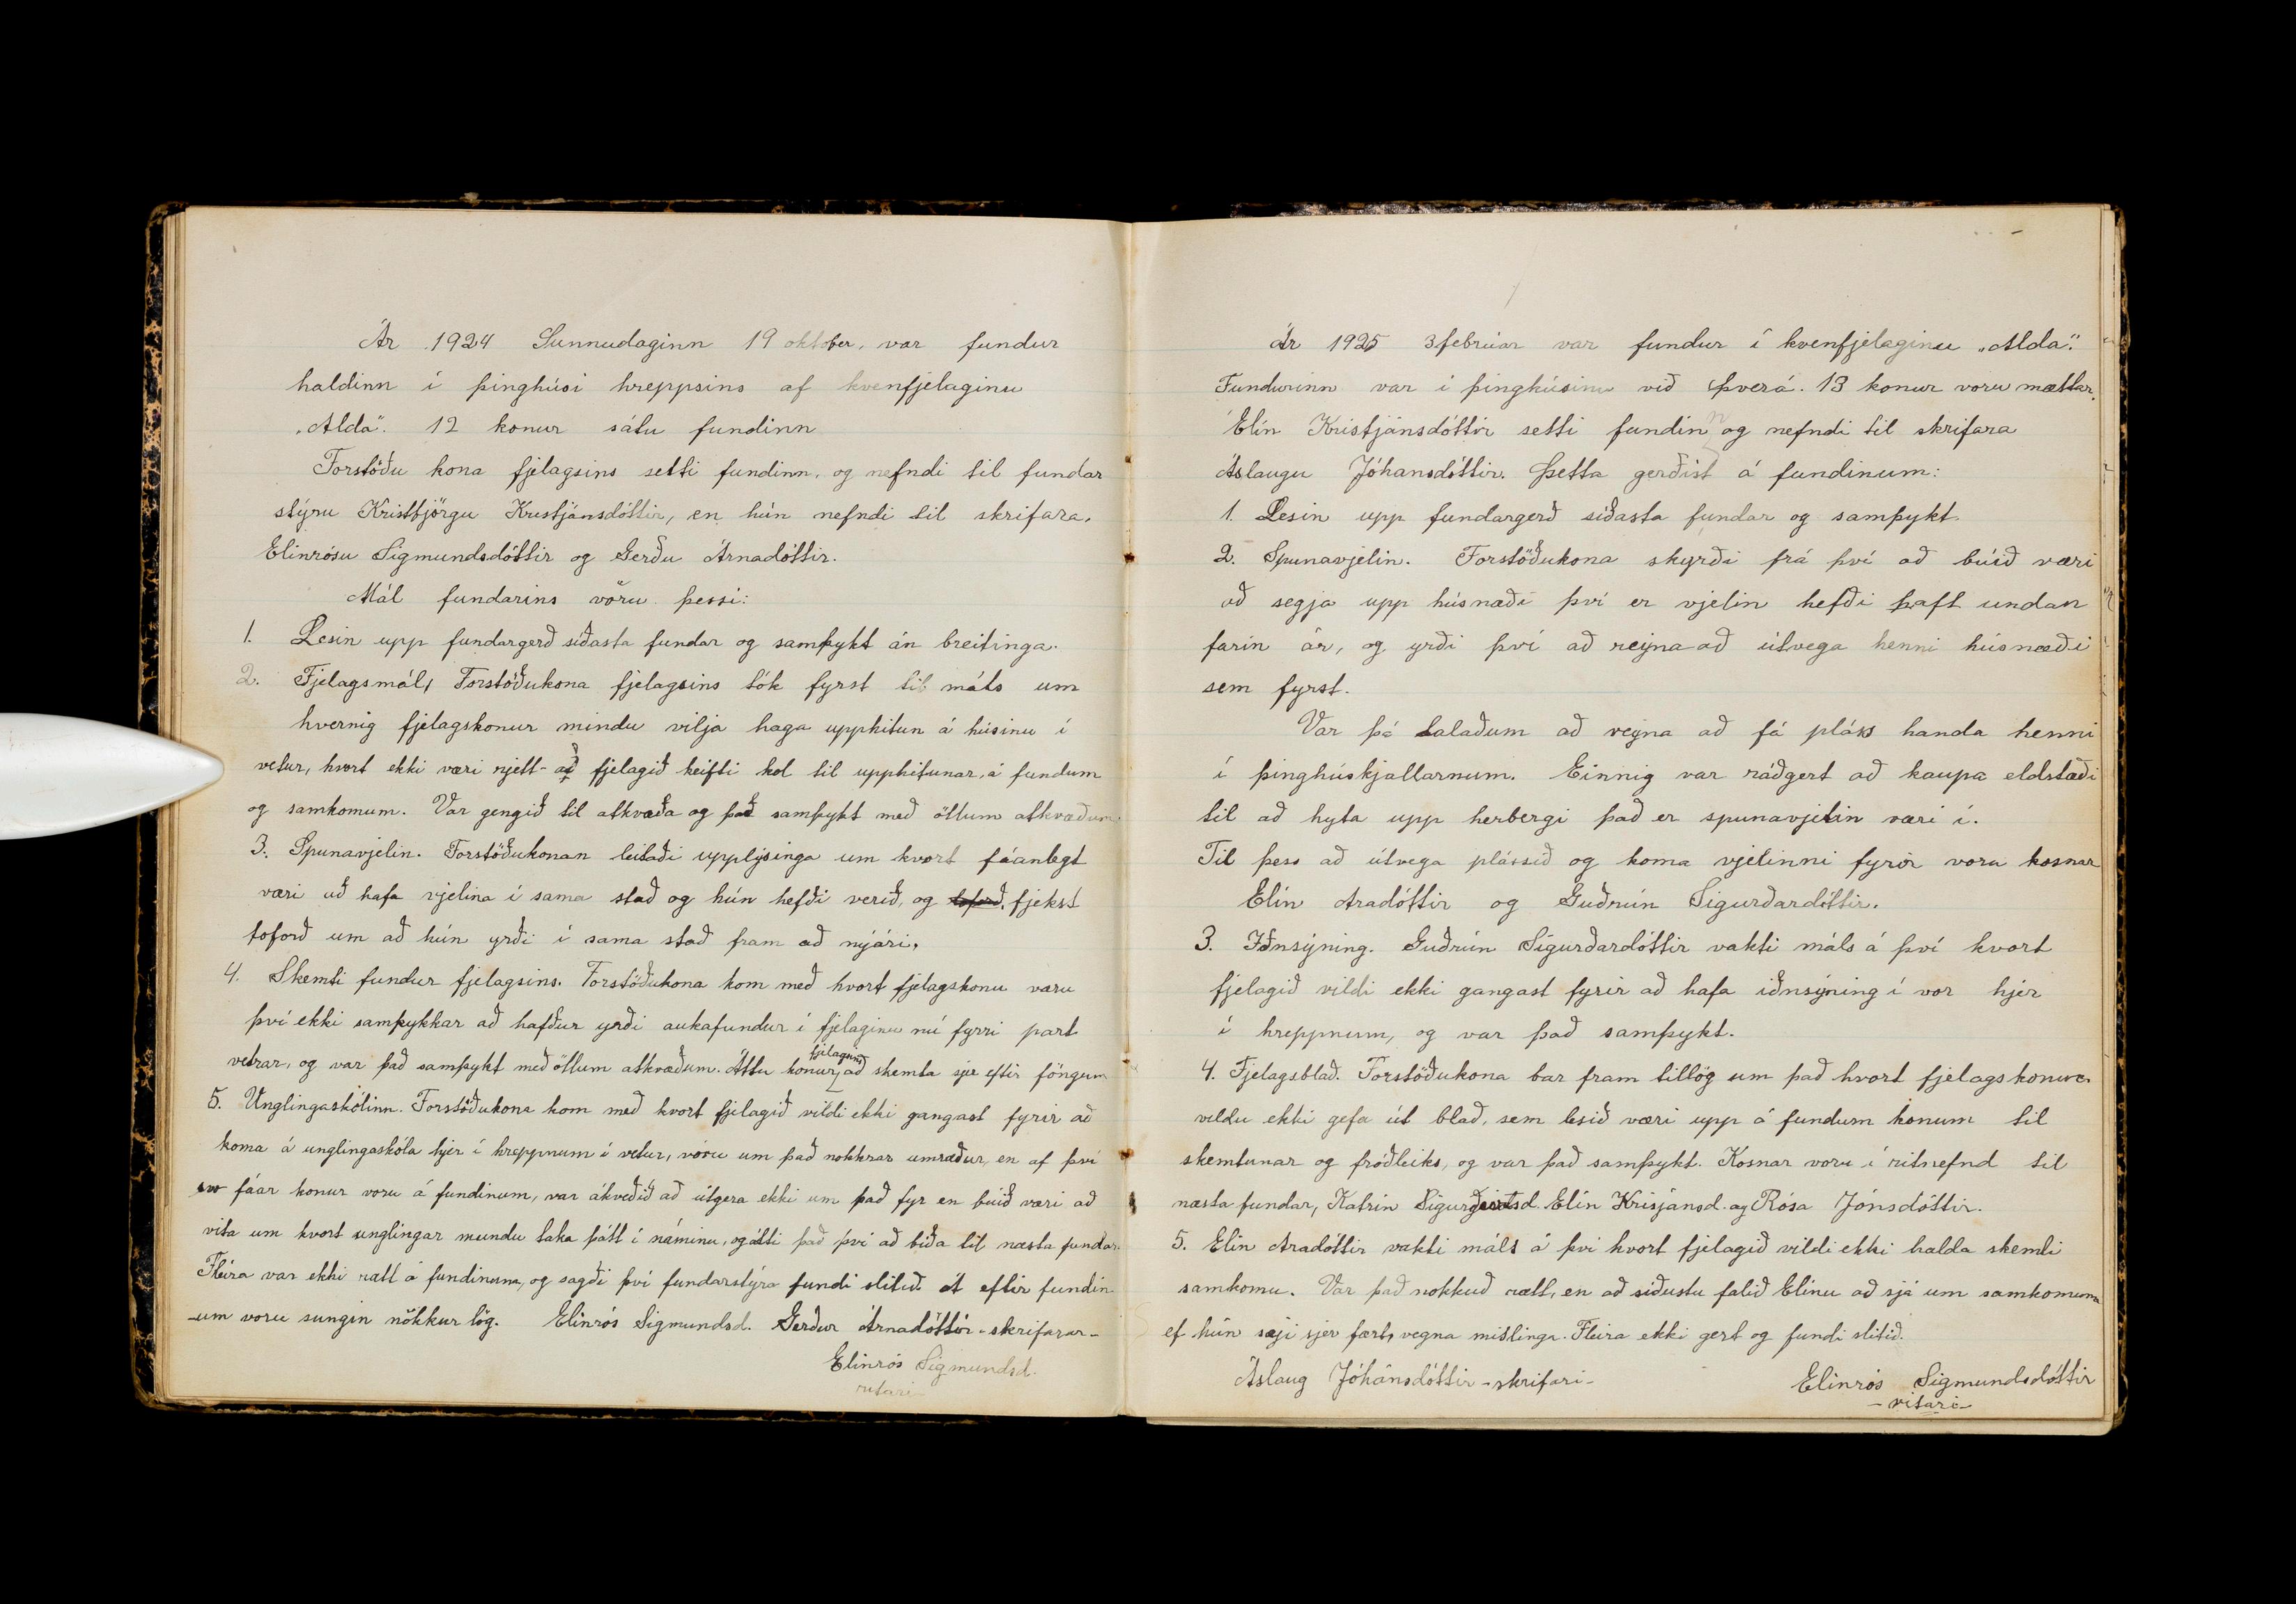 Ár 1924 Sunnudaginn 19 október, var fundur
haldinn í þinghúsi hreppsins af kvenfjelaginu
„Alda". 12 konur sátu fundinn
Forstöðu kona fjelagsins setti fundinn, og nefndi til fundar
stýru Kristbjörgu Kristjánsdóttir, en hún nefndi til skrifara,
Elinrósu Sigmundsdóttir og Gerðu Árnadóttir.
Mál fundarins vöru þessi:
1. Lesin upp fundargerð síðasta fundar og samþykt án breitinga.
2. Fjelagsmál, Forstöðukona fjelagsins tók fyrst til máls um
hvernig fjelagskonur mindu vilja haga upphitun á húsinu í
vetur, hvort ekki væri rjett-að fjelagið keifti kol til upphitunar, á fundum
og samkomum. Var gengið til atkvæða og það samþykt með öllum atkvæðum.
3. Spunavjelin. Forstöðukonan leitaði upplýsinga um hvort fáanlegt
væri að hafa vjelina í sama stað og hún hefði verið, og loforð, fjekst
loforð um að hún yrði í sama stað fram að nýári,
4. Skemti fundur fjelagsins. Forstöðukona kom með hvort fjelagskonu væru
því ekki samþykkar að hafður yrði aukafundur í fjelaginu nú fyrri part
vetrar, og var það samþykt með öllum atkvæðum. Áttu konur fjelagsins að skemta sjer eftir föngum
5. Unglingaskólinn. Forstöðukona kom með hvort fjelagið vildi ekki gangast fyrir að
koma á unglingaskóla hjer í hreppnum í vetur, vóru um það nokkrar umræður, en af því
svo fáar konur voru á fundinum, var ákveðið að útgera ekki um það fyr en búið væri að
vita um hvort unglingar mundu taka þátt í náminu, og átti það því að bíða til næsta fundar.
Fleira var ekki rætt á fundinum, og sagði því fundarstýra fundi slitið. Á eftir fundin-
-um voru sungin nökkur lög. Elinrós Sigmundsd. Gerður Árnadóttir - skrifarar -
Elinrós Sigmundsd.
ritari-
Ár 1925 3 febrúar var fundur í kvenfjelaginu „Alda".
Fundurinn var í þinghúsinu við Þverá. 13 konur voru mættar.
Elín Kristjánsdóttir setti fundinn og nefndi til skrifara
Áslaugu Jóhansdóttir. Þetta gerðist á fundinum:
1. Lesin upp fundargerð síðasta fundar og samþykt.
2. Spunavjelin. Forstöðukona skyrði frá því að búið væri
að segja upp húsnæði því er vjelin hefði haft undan
farin ár, og yrði því að reyna að útvega henni húsnæði
sem fyrst.
Var þá talaðum að reyna að fá pláss handa henni
í þinghúskjallarnum. Einnig var ráðgert að kaupa eldstæði
til að hyta upp herbergi það er spunavjelin væri í.
Til þess að útvega plássið og koma vjelinni fyrir voru kosnar
Elín Aradóttir og Guðrún Sigurðardóttir.
3. Iðnsýning. Guðrún Sigurðardóttir vakti máls á því hvort
fjelagið vildi ekki gangast fyrir að hafa iðnsýning í vor hjer
í hreppnum, og var það samþykt.
4. Fjelagsblað. Forstöðukona bar fram tillög um það hvort fjelagskonur
vildu ekki gefa út blað, sem lesið væri upp á fundum konum til
skemtunar og fróðleiks, og var það samþykt. Kosnar voru í ritnefnd til
næsta fundar, Katrín Elín Krisjánsd. og Rósa Jónsdóttir.
5. Elín Aradóttir vakti máls á því hvort fjelagið vildi ekki halda skemti
samkomu. Var það nokkuð rætt, en að síðustu falið Elínu að sjá um samkomuna
ef hún sæji sjer fært, vegna mislinga. Fleira ekki gert og fundi slitið.
Áslaug Jóhánsdóttir - skrifari -
Elinrós Sigmundsdóttir
- ritari -